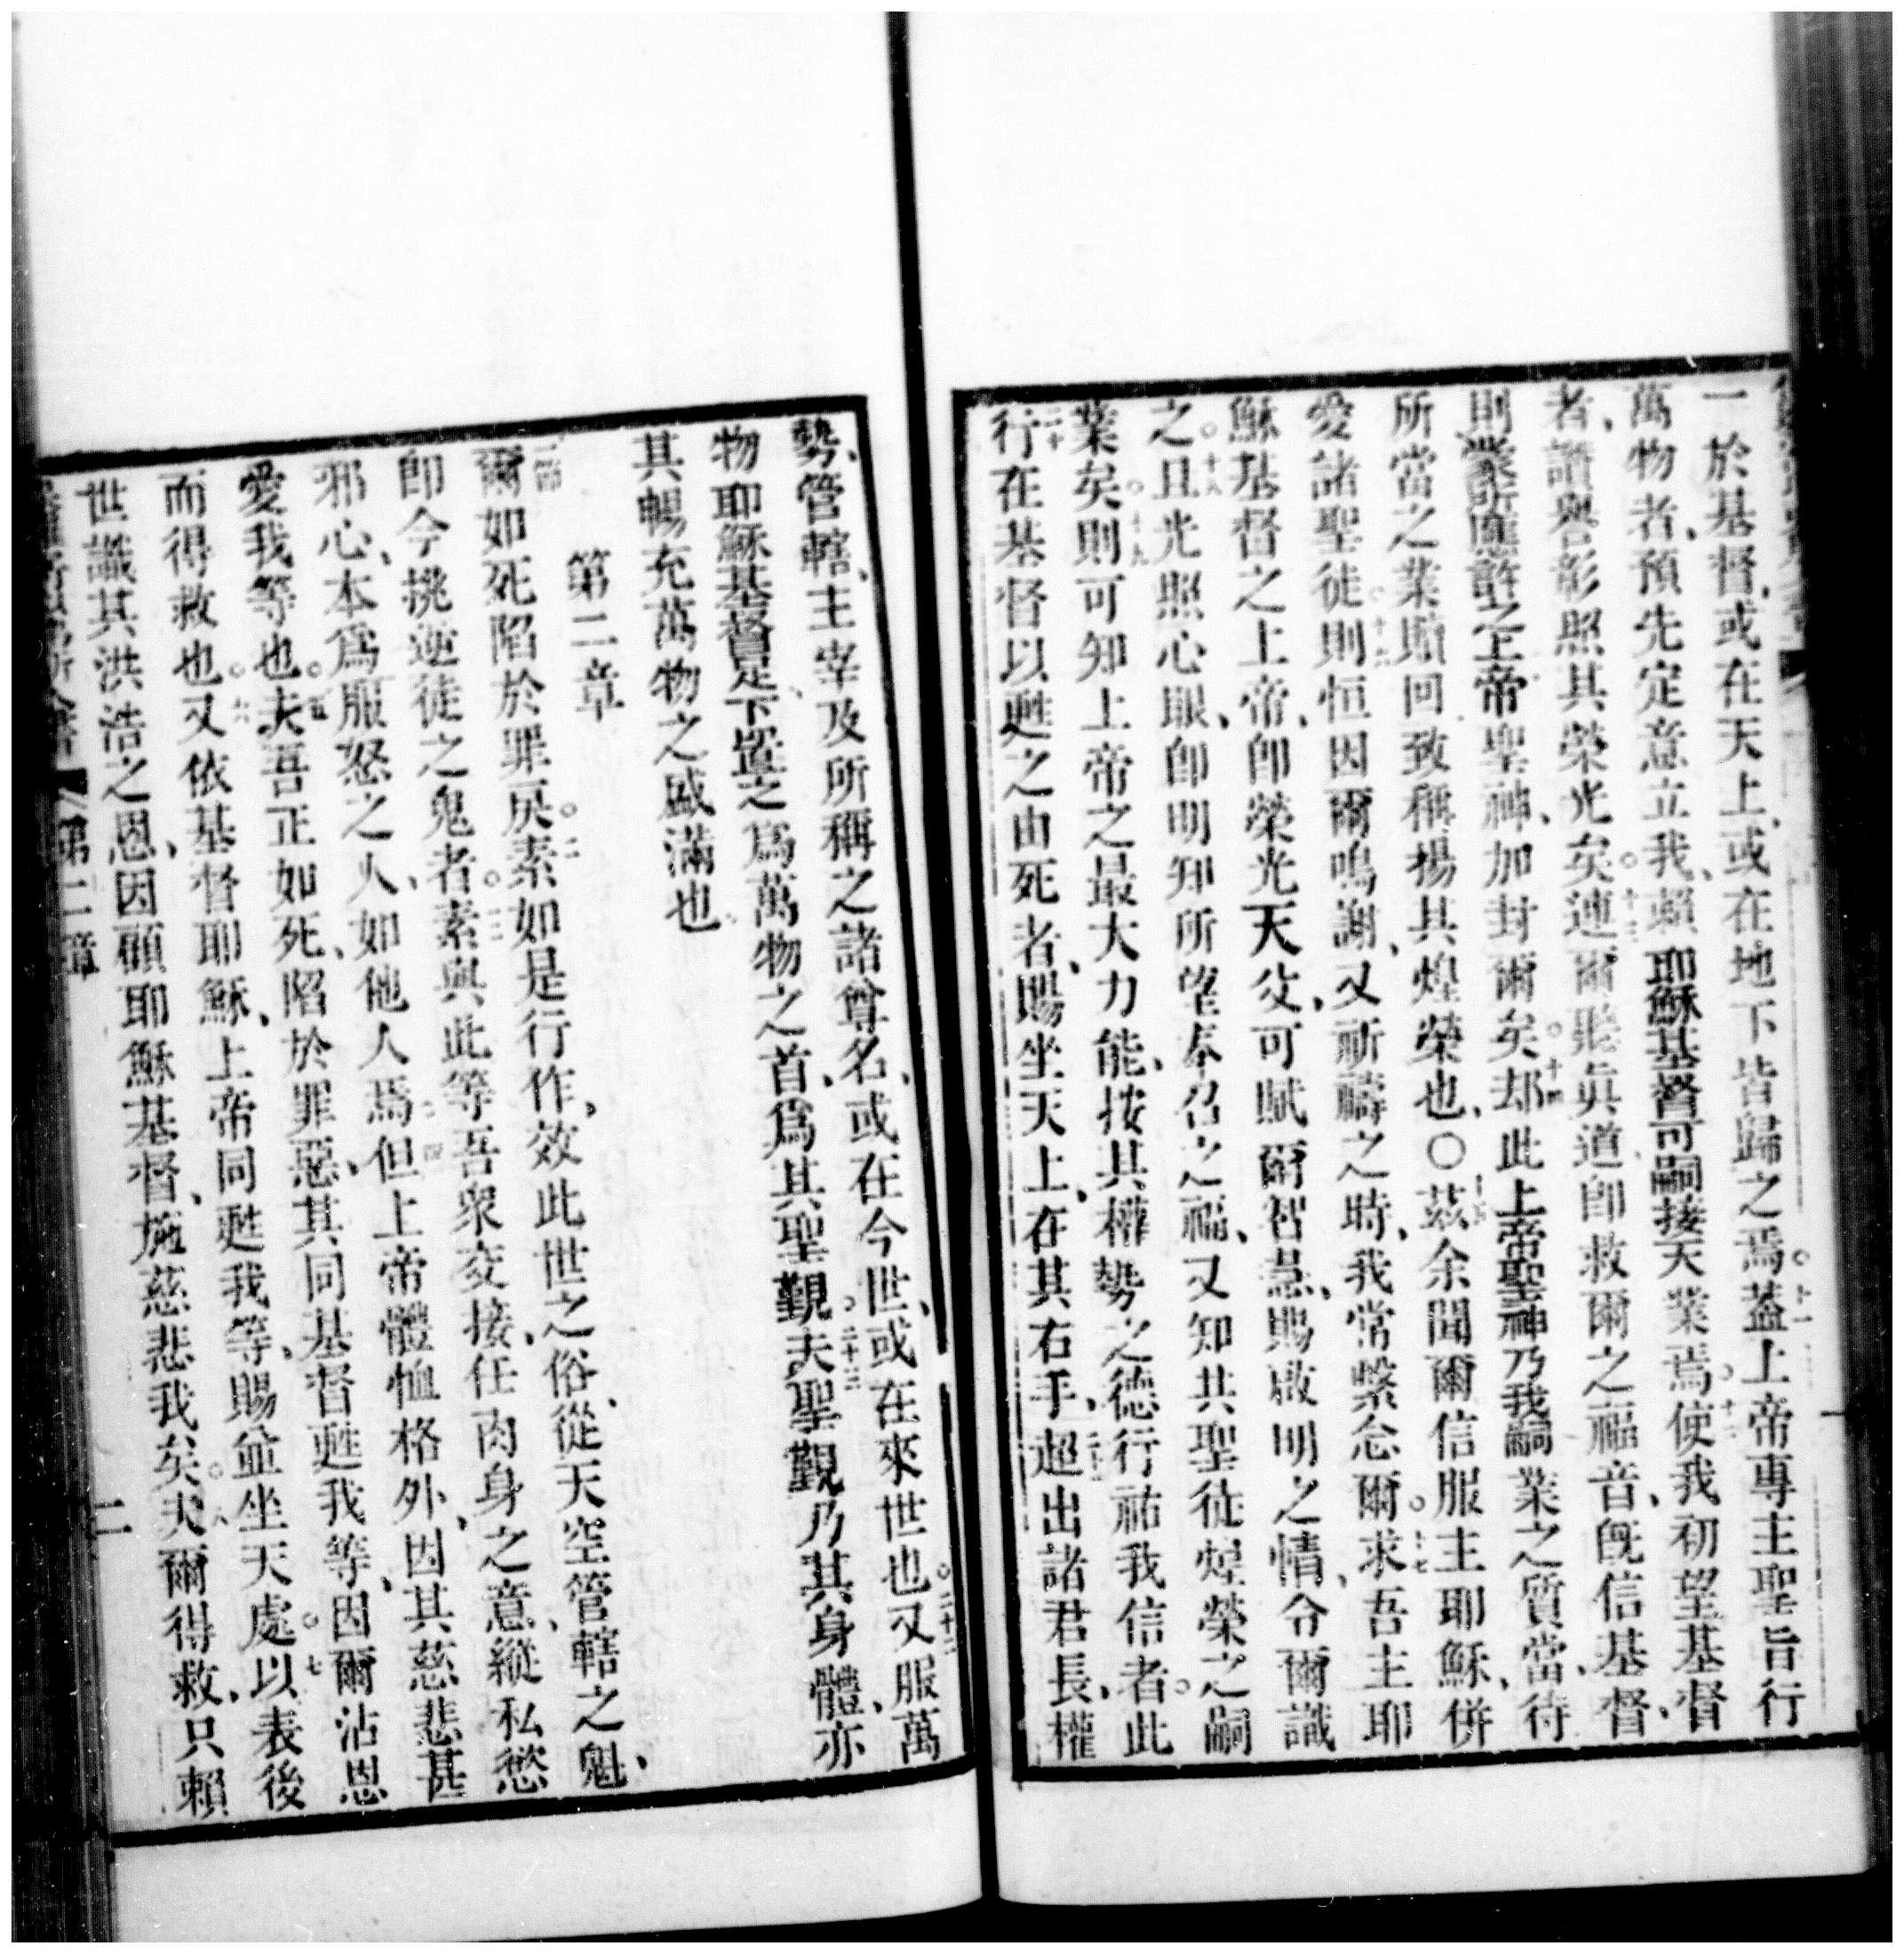 一於基督、或在天上、或在地下皆歸之焉。十一蓋上帝專主聖旨行
萬物者、預先定意立我、賴耶穌基督可嗣接天業焉。十二使我初望基督
者、讚譽彰照其榮光矣。十三連爾聽眞道卽救爾之福音、旣信基督、
則蒙所應許之上帝聖神、加封爾矣。十四却此上帝聖神乃我嗣業之質當、待
所當之業贖回致稱揚其煌榮也、〇十五茲余聞爾信服主耶穌、併
愛諸聖徒。十六則恒因爾鳴謝、又祈禱之時、我常繫念爾。十七求吾主耶
穌基督之上帝、卽榮光天父、可賦爾智慧、賜啟明之情、令爾識
之。十八且光照心眼、卽明知所望奉召之福、又知其聖徒煌榮之嗣
業矣。十九則可知上帝之最大力能、按其權勢之德行祐我信者。此
二十行在基督以甦之由死者、賜坐天上、在其右手、二十一超出諸君長、權
勢、管轄、主宰及所稱之諸尊名、或在今世、或在來世也。二十二又服萬
物耶穌基督足下、置之爲萬物之首、爲其聖觀。二十三夫聖觀乃其身體、亦
其暢充萬物之盛滿也
第二章
一節爾如死陷於罪戾。二素如是行作、效此世之俗、從天空管轄之魁、
卽今挑逆徒之鬼者。三素與此等吾衆交接、任肉身之意、縱私慾
邪心、本爲服怒之人、如他人焉。四但上帝體恤格外、因其慈悲甚
愛我等也。五夫吾正如死、陷於罪惡、其同基督甦我等、因爾沾恩
而得救也。六又依基督耶穌、上帝同甦我等、賜並坐天處。七以表後
世識其洪浩之恩、因顧耶穌基督、施慈悲我矣。八夫爾得救、只賴
第二章
二